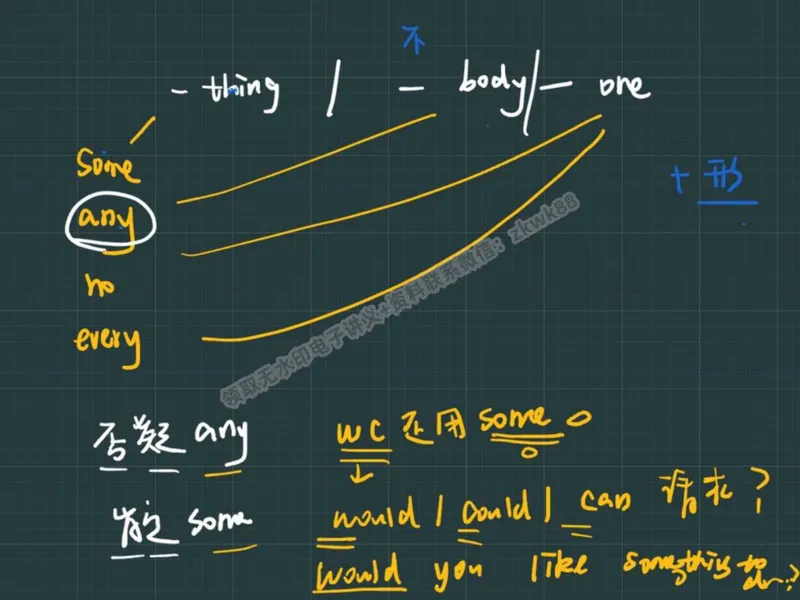 不
- thing / - body / - one
some
+ 形
any
no
every
领取无水印电子讲义+资料联系微信：zkwk88
否疑 any
wc 还用 some
肯定 some
would / could / can 请求?
would you like something to